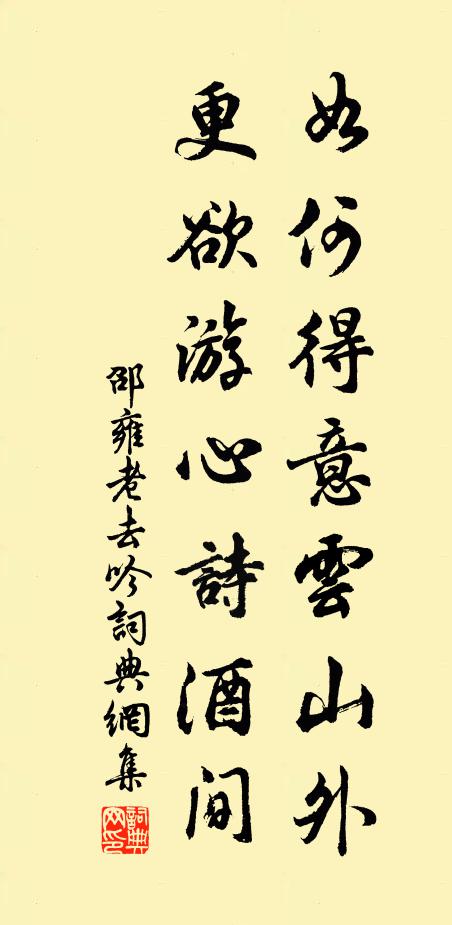 如何得意雲山外
更欲游心詩酒間
邵雍老去吟詞典網集
詞典网印